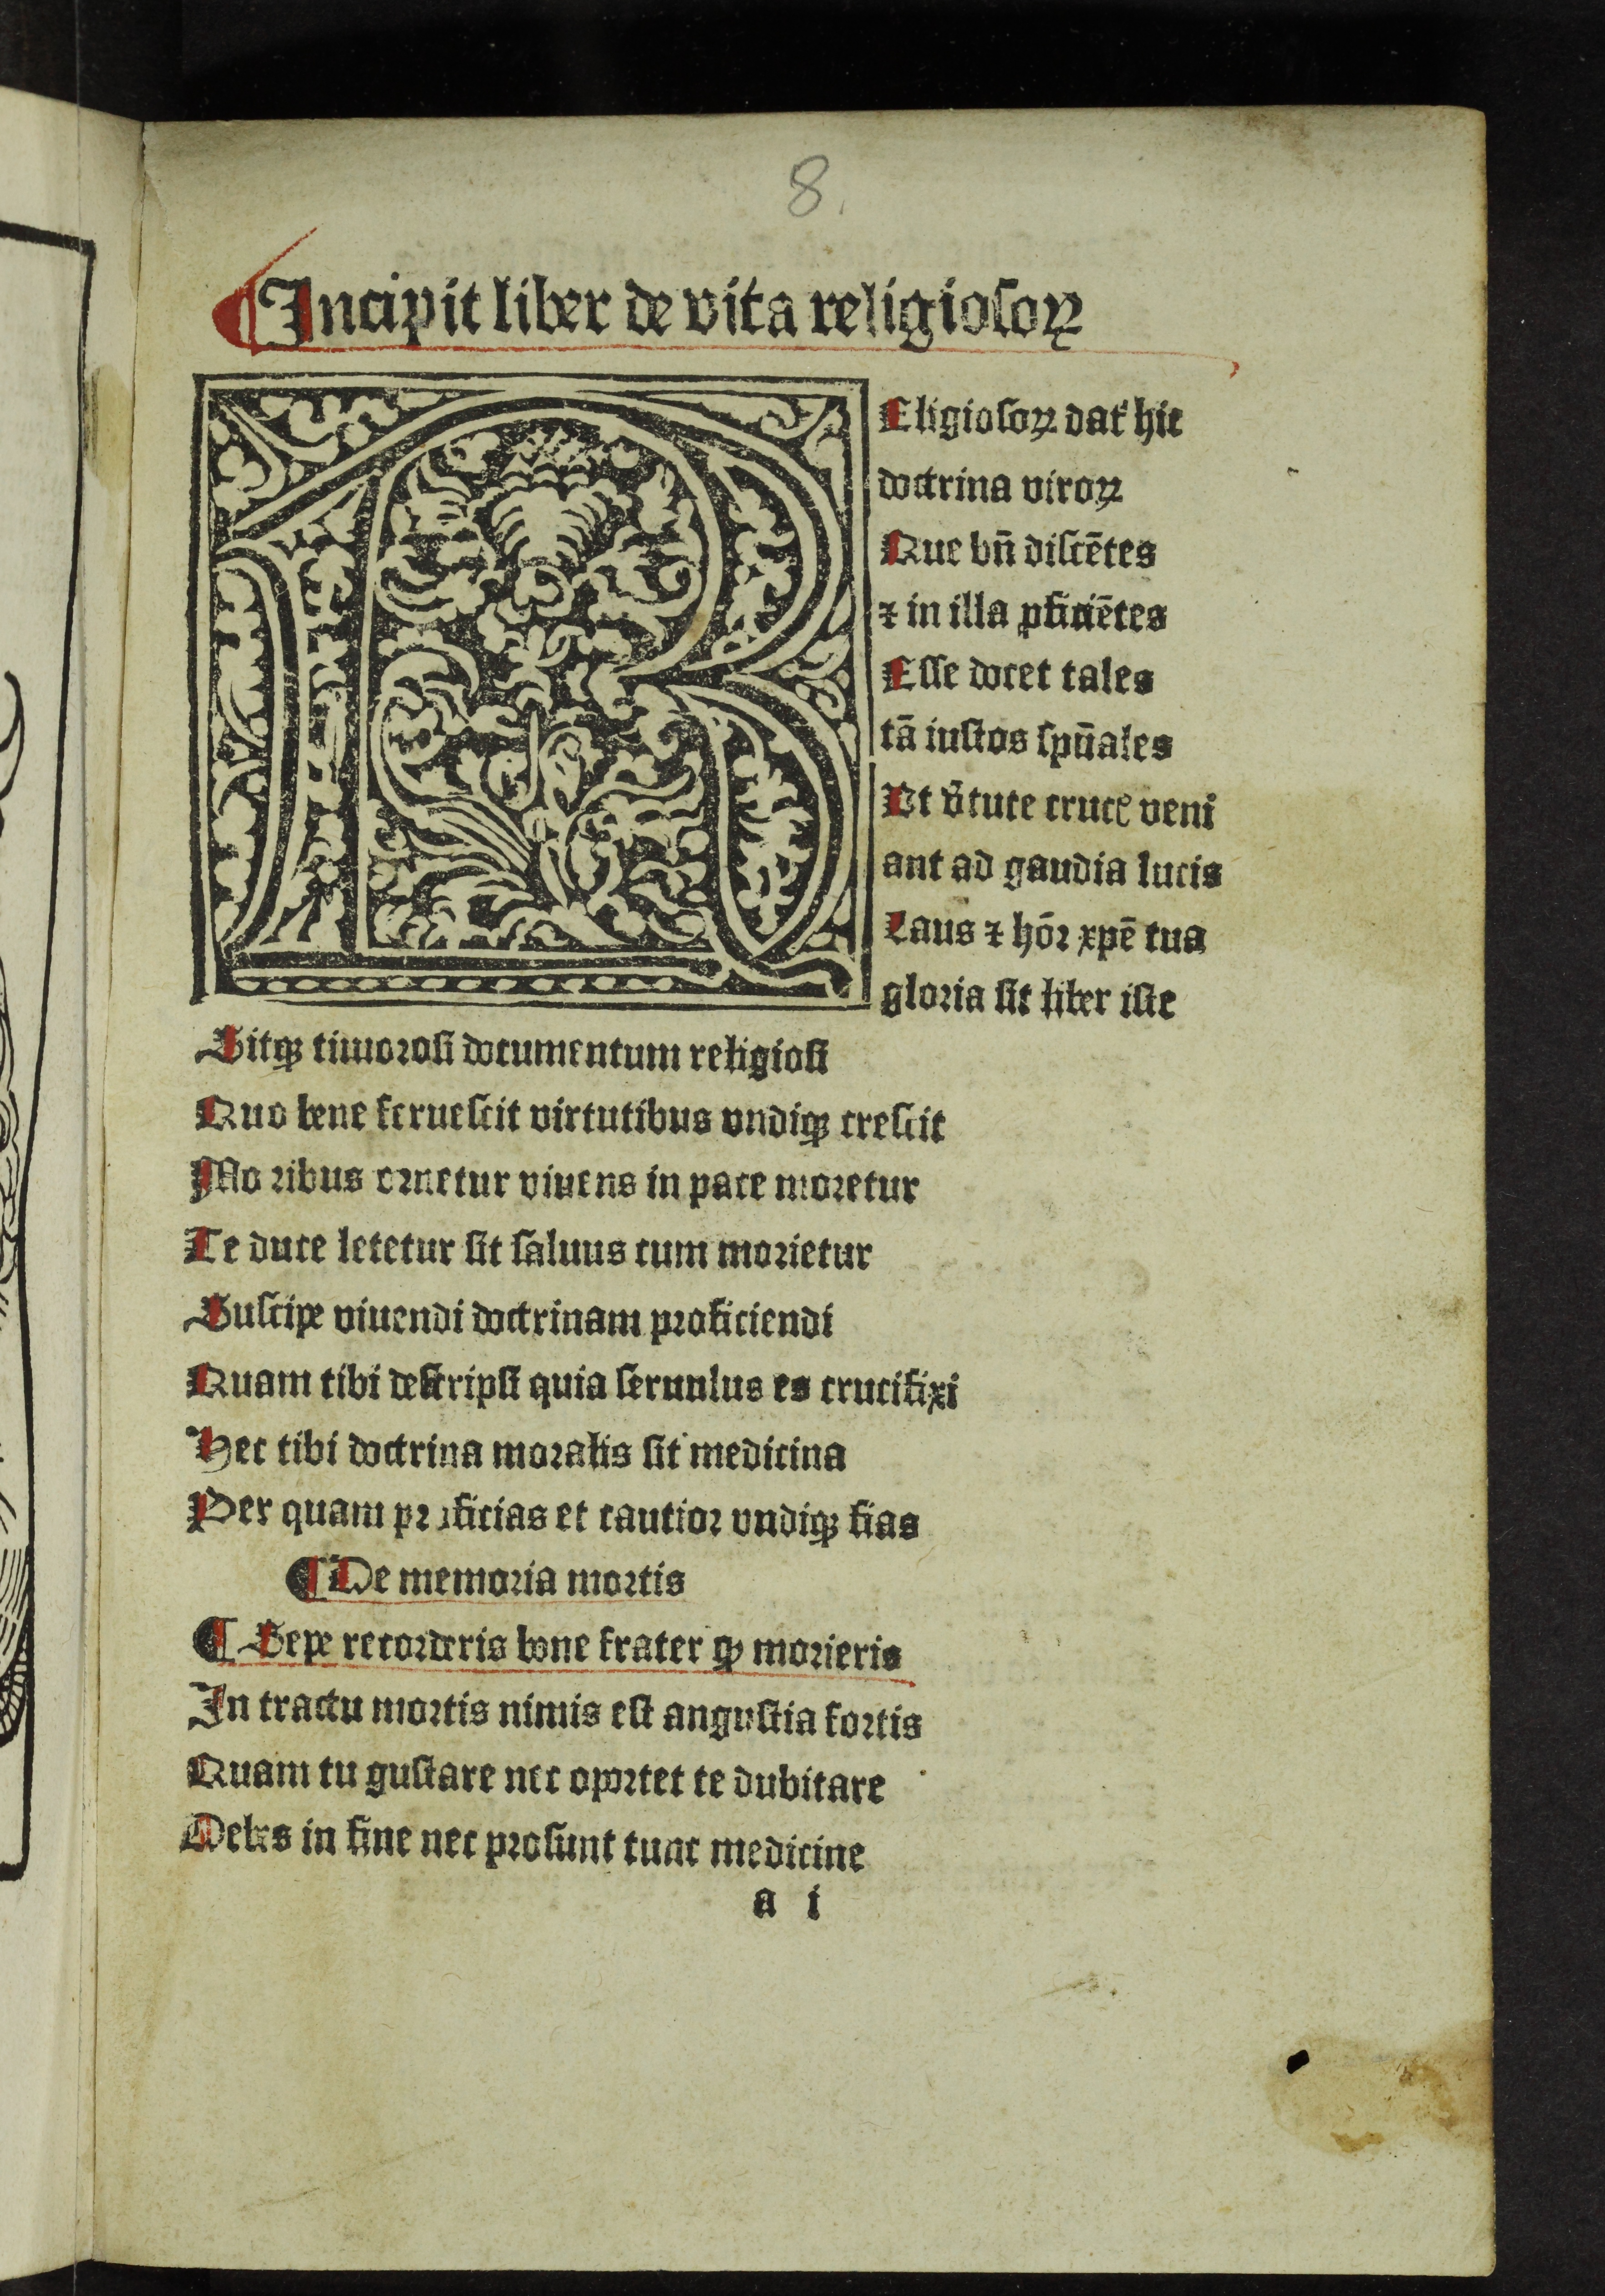 8.
¶Incipit liber de vita religiosoꝝ
REligiosoꝝ dat᷑ hic
doctrina viroꝝ
Que bn̄ discētes
⁊ in illa ꝓficiētes
Esse docet tales
tā iustos spūales
Ut v̄tute crucꝭ veni
ant ad gaudia lucis
Laus ⁊ hōr xpē tua
gloria sit liber iste
Sitqꝫ timorosi documentum religiosi
Quo bene feruescit virtutibus vndiqꝫ crescit
Mo ribus ornetur viuens in pace moretur
Te duce letetur sit saluus cum morietur
Suscipe viuendi doctrinam proficiendi
Quam tibi descripsi quia seruulus es crucifixi
Hec tibi doctrina moralis sit medicina
Per quam proficias et cautior vndiqꝫ fias
¶De memoria mortis
¶ Sepe recorderis bone frater ꝙ morieris
In tractu mortis nimis est angustia fortis
Quam tu gustare nec oportet te dubitare
Debes in fine nec prosunt tunc medicine
a i